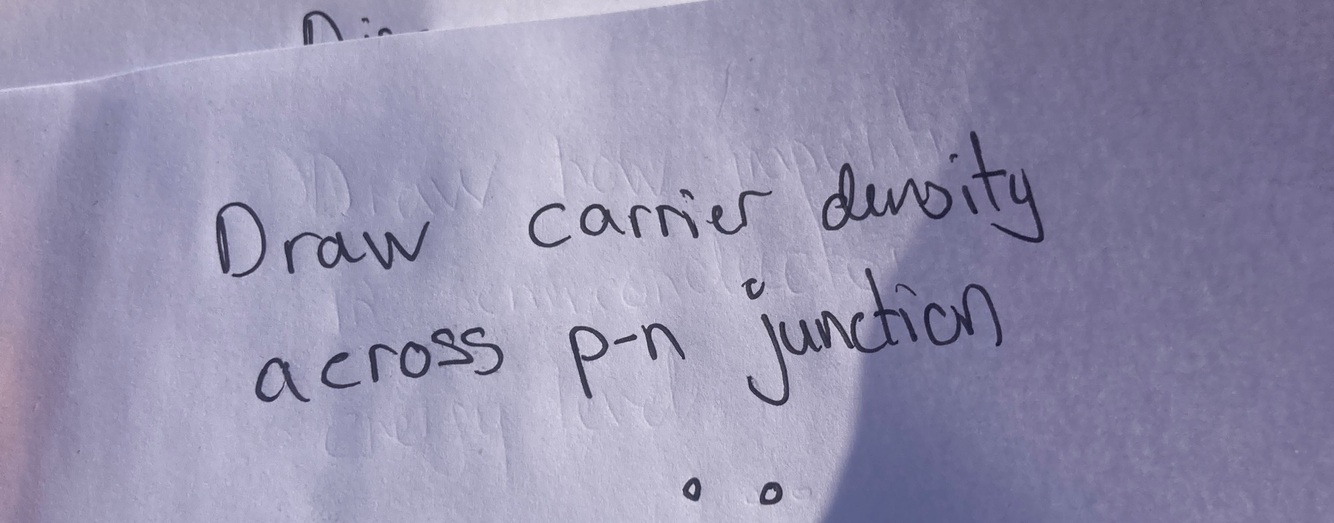 Draw carrier density
across p-n junction